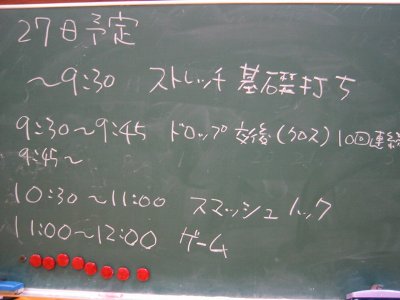 27日予定
～9:30 ストレッチ 基礎打ち
9:30～9:45 ドロップ交後(クロス)10回連続
9:45～
10:30～11:00 スマッシュノック
11:00～12:00 ゲーム